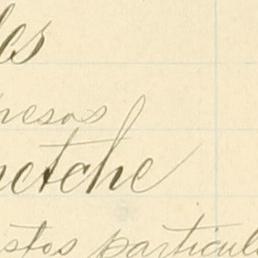 les
pesos
netche
stos particul